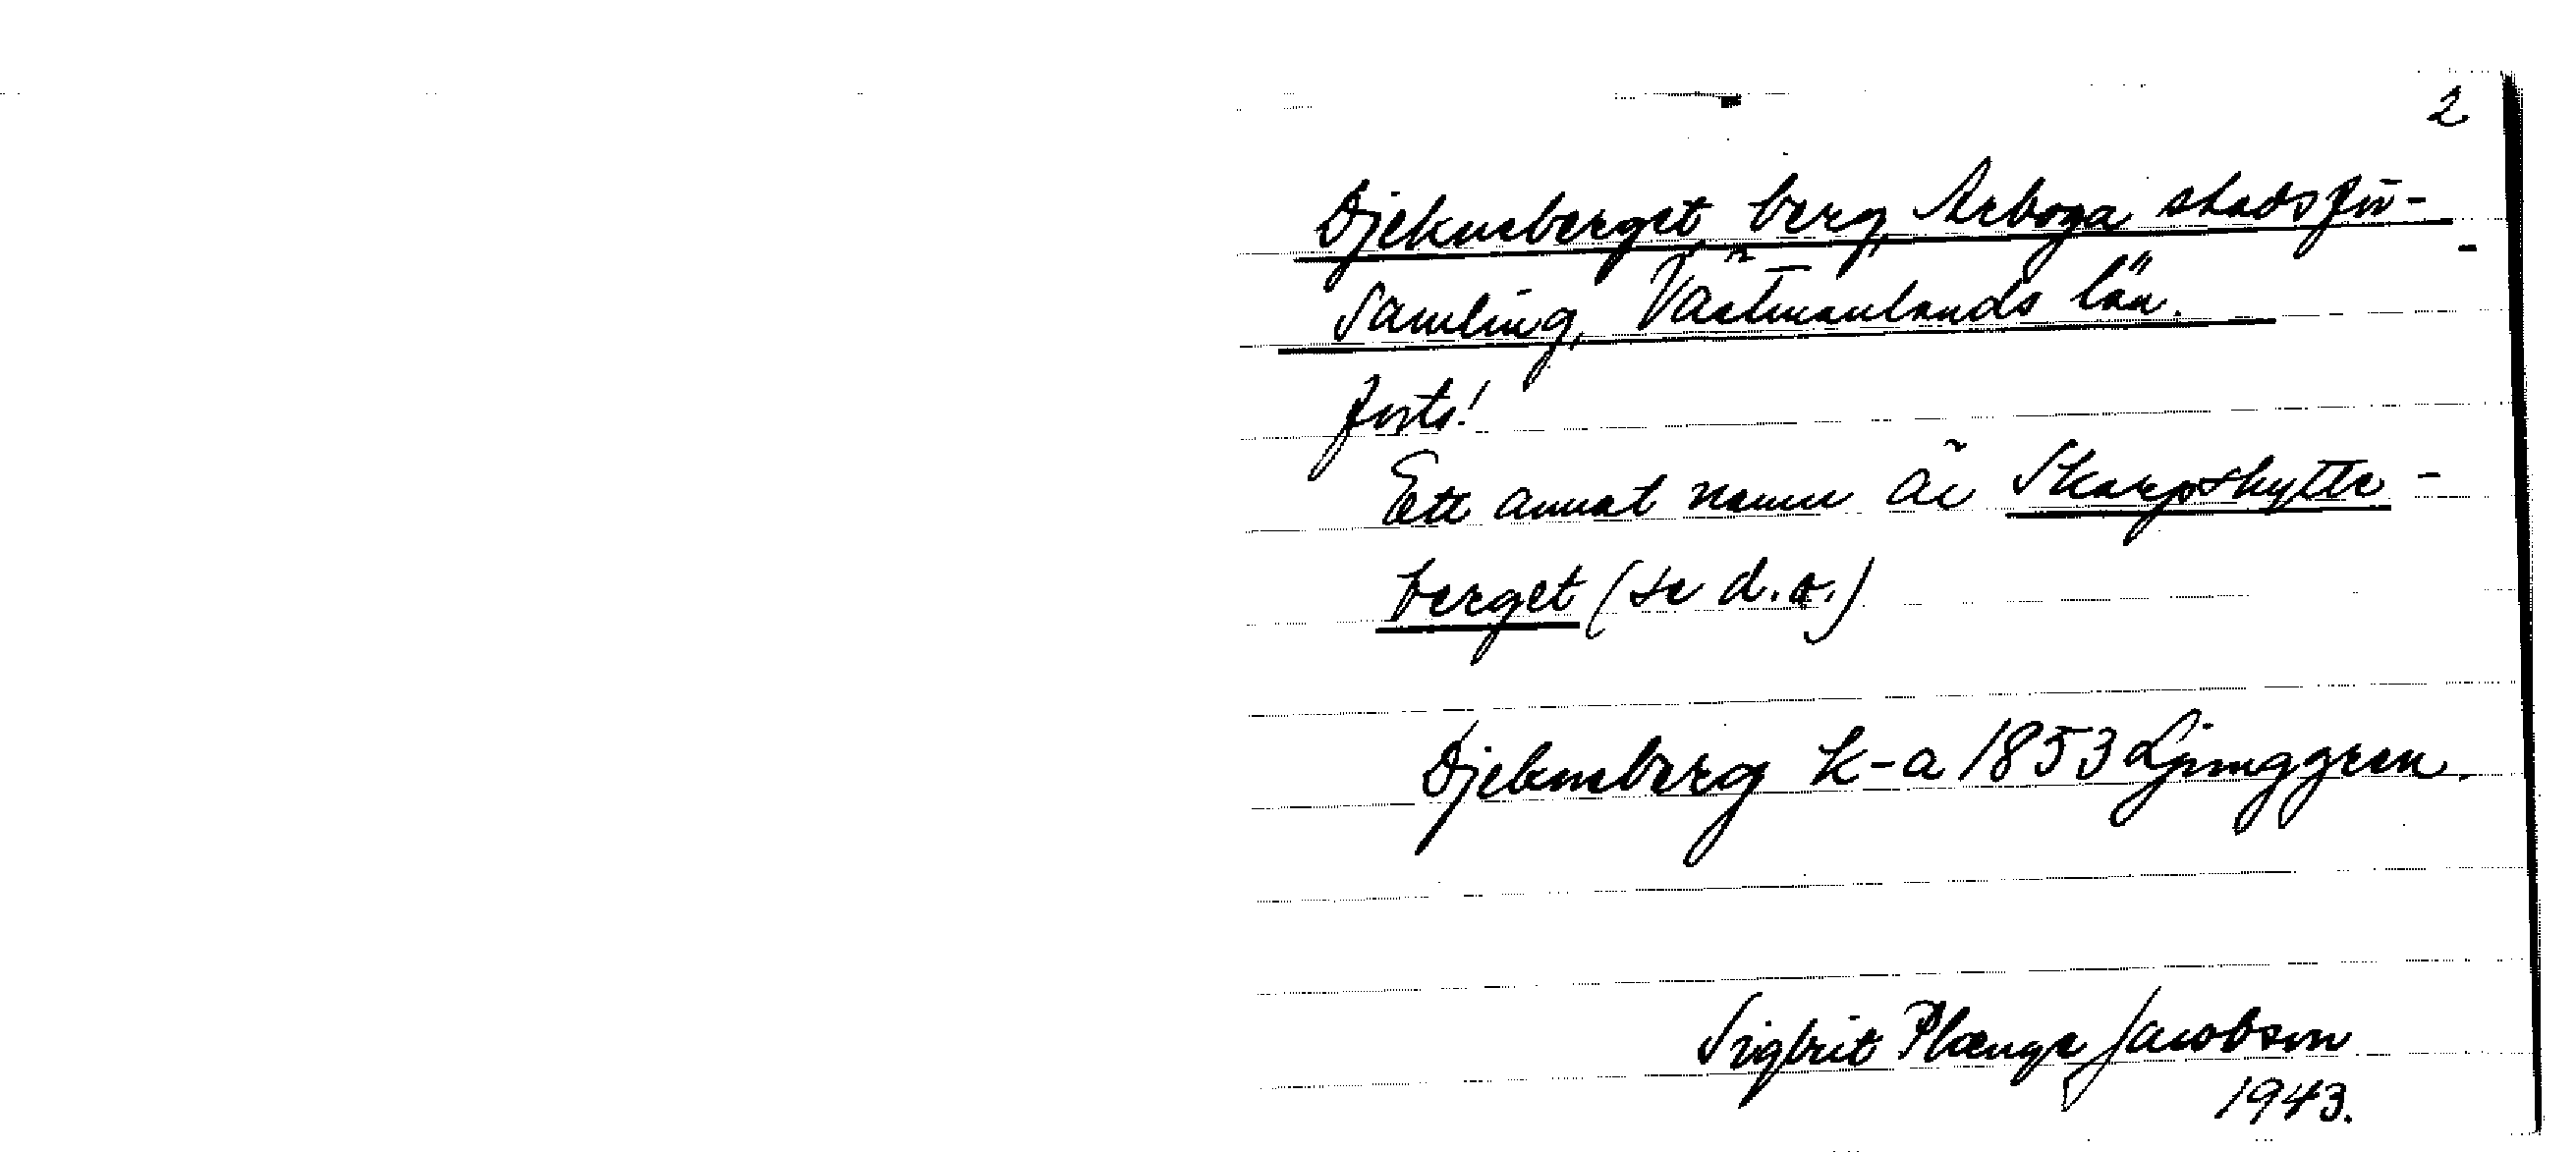 2
Djekneberget, berg, Arboga stadsför-
samling, Västmanlands län.
forts!
Ett annat namn är Skarpskytte-
berget (se d.o.)
Djekneberg k-a 1853 Ljunggren.
Sigbrit Plænge Jacobson
1943.